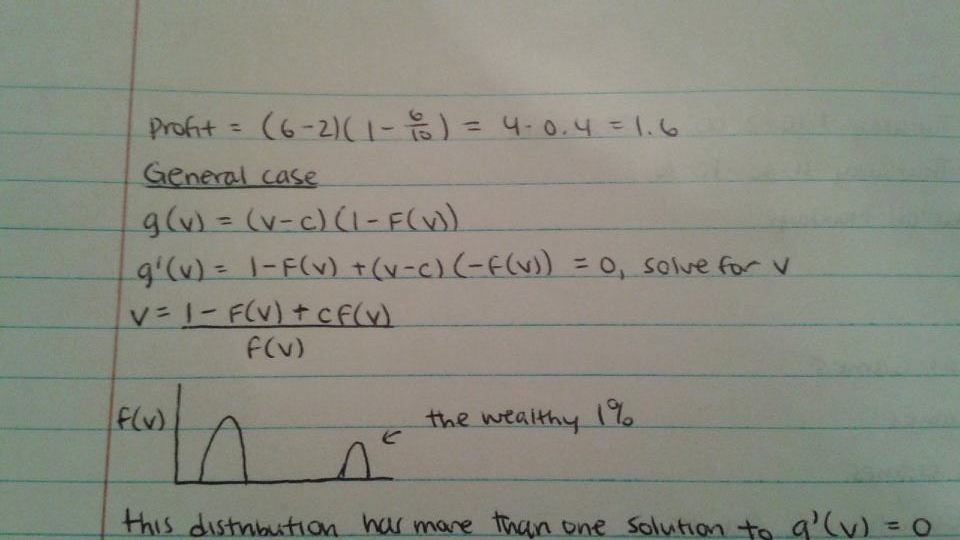 Profit = (6-2)(1-6/10) = 4·0.4 = 1.6
General case
g(v) = (v-c)(1-F(v))
g'(v) = 1-F(v) + (v-c)(-f(v)) = 0, solve for v
v = 1-F(v) + cf(v)
f(v)
f(v) the wealthy 1%
this distribution has more than one solution to g'(v) = 0